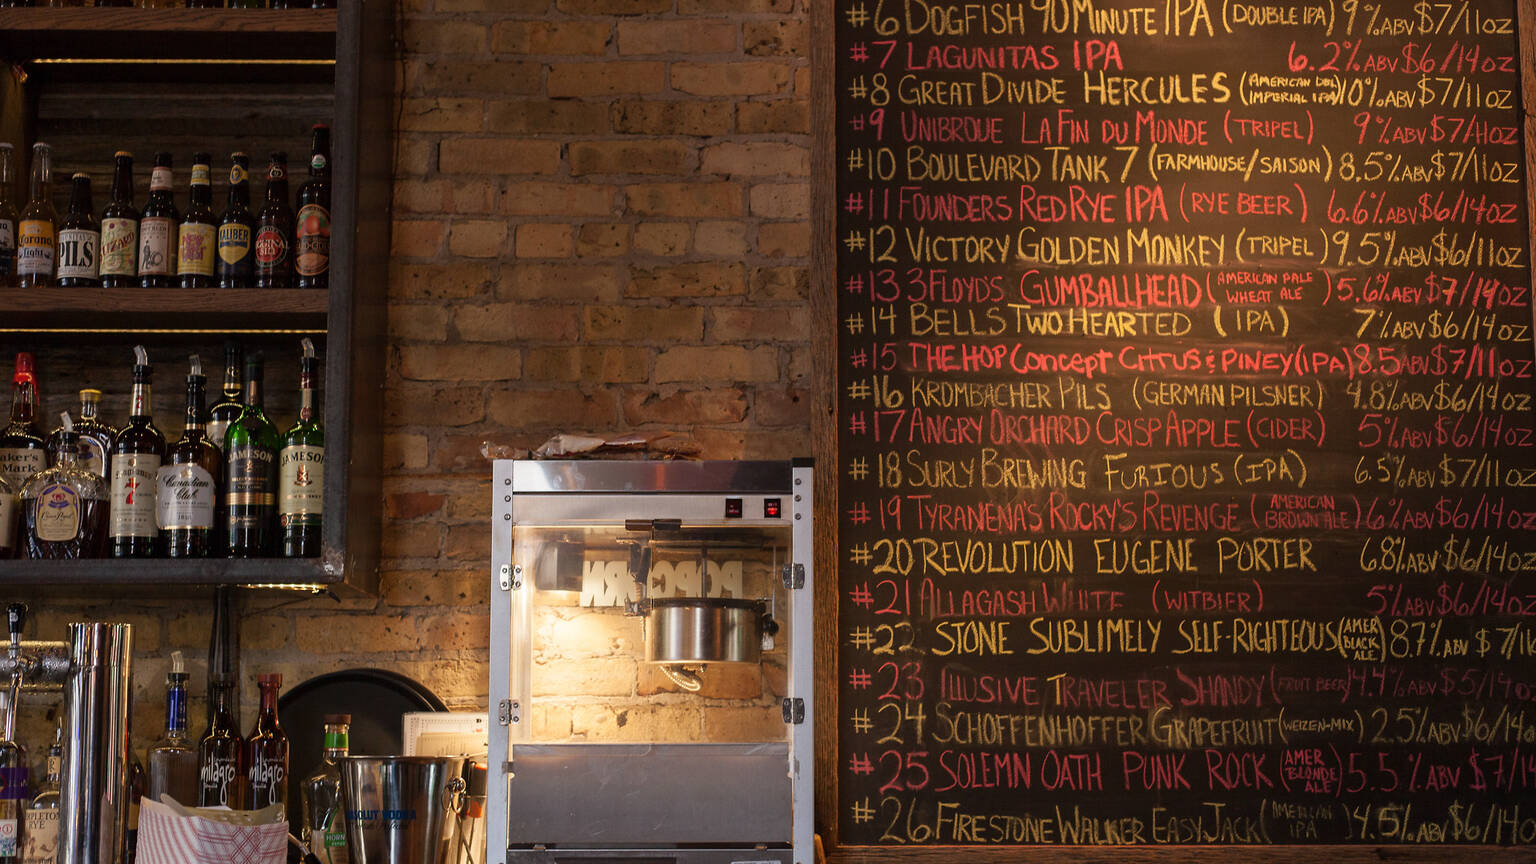 #6 DOGFISH 90 MINUTE IPA (DOUBLE IPA) 9%ABV $7/11OZ
#7 LAGUNITAS IPA 6.2%ABV $6/14OZ
#8 GREAT DIVIDE HERCULES (AMERICAN DBL IMPERIAL IPA) 10%ABV $7/11OZ
#9 UNIBROUE LA FIN DU MONDE (TRIPEL) 9%ABV $7/11OZ
#10 BOULEVARD TANK 7 (FARMHOUSE/SAISON) 8.5%ABV $7/11OZ
#11 FOUNDERS RED RYE IPA (RYE BEER) 6.6%ABV $6/14OZ
#12 VICTORY GOLDEN MONKEY (TRIPEL) 9.5%ABV $6/11OZ
#13 3FLOYDS GUMBALLHEAD (AMERICAN PALE WHEAT ALE) 5.6%ABV $7/14OZ
#14 BELLS TWO HEARTED (IPA) 7%ABV $6/14OZ
#15 THE HOP CONCEPT CITRUS & PINEY (IPA) 8.5%ABV $7/11OZ
#16 KROMBACHER PILS (GERMAN PILSNER) 4.8%ABV $6/14OZ
#17 ANGRY ORCHARD CRISP APPLE (CIDER) 5%ABV $6/14OZ
#18 SURLY BREWING FURIOUS (IPA) 6.5%ABV $7/11OZ
#19 TYRANENA'S ROCKY'S REVENGE (AMERICAN BROWN ALE) 6%ABV $6/14OZ
#20 REVOLUTION EUGENE PORTER 6.8%ABV $6/14OZ
#21 ALLAGASH WHITE (WITBIER) 5%ABV $6/14OZ
#22 STONE SUBLIMELY SELF-RIGHTEOUS (AMER BLACK ALE) 8.7%ABV $7/11
#23 ILLUSIVE TRAVELER SHANDY (FRUIT BEER) 4.4%ABV $5/14O
#24 SCHOFFENHOFFER GRAPEFRUIT (WEIZEN-MIX) 2.5%ABV $6/14O
#25 SOLEMN OATH PUNK ROCK (AMER BLONDE ALE) 5.5%ABV $7/14
#26 FIRESTONE WALKER EASY JACK (AMERICAN IPA) 4.5%ABV $6/14O
POPCORN
Corona
Light
PILS
WIZARD
KALIBER
ORIGINAL
Maker's
Mark
Crown Royal
Canadian
Club
JAMESON
JAMESON
milagro
milagro
ABSOLUT VODKA
RYE
HORN